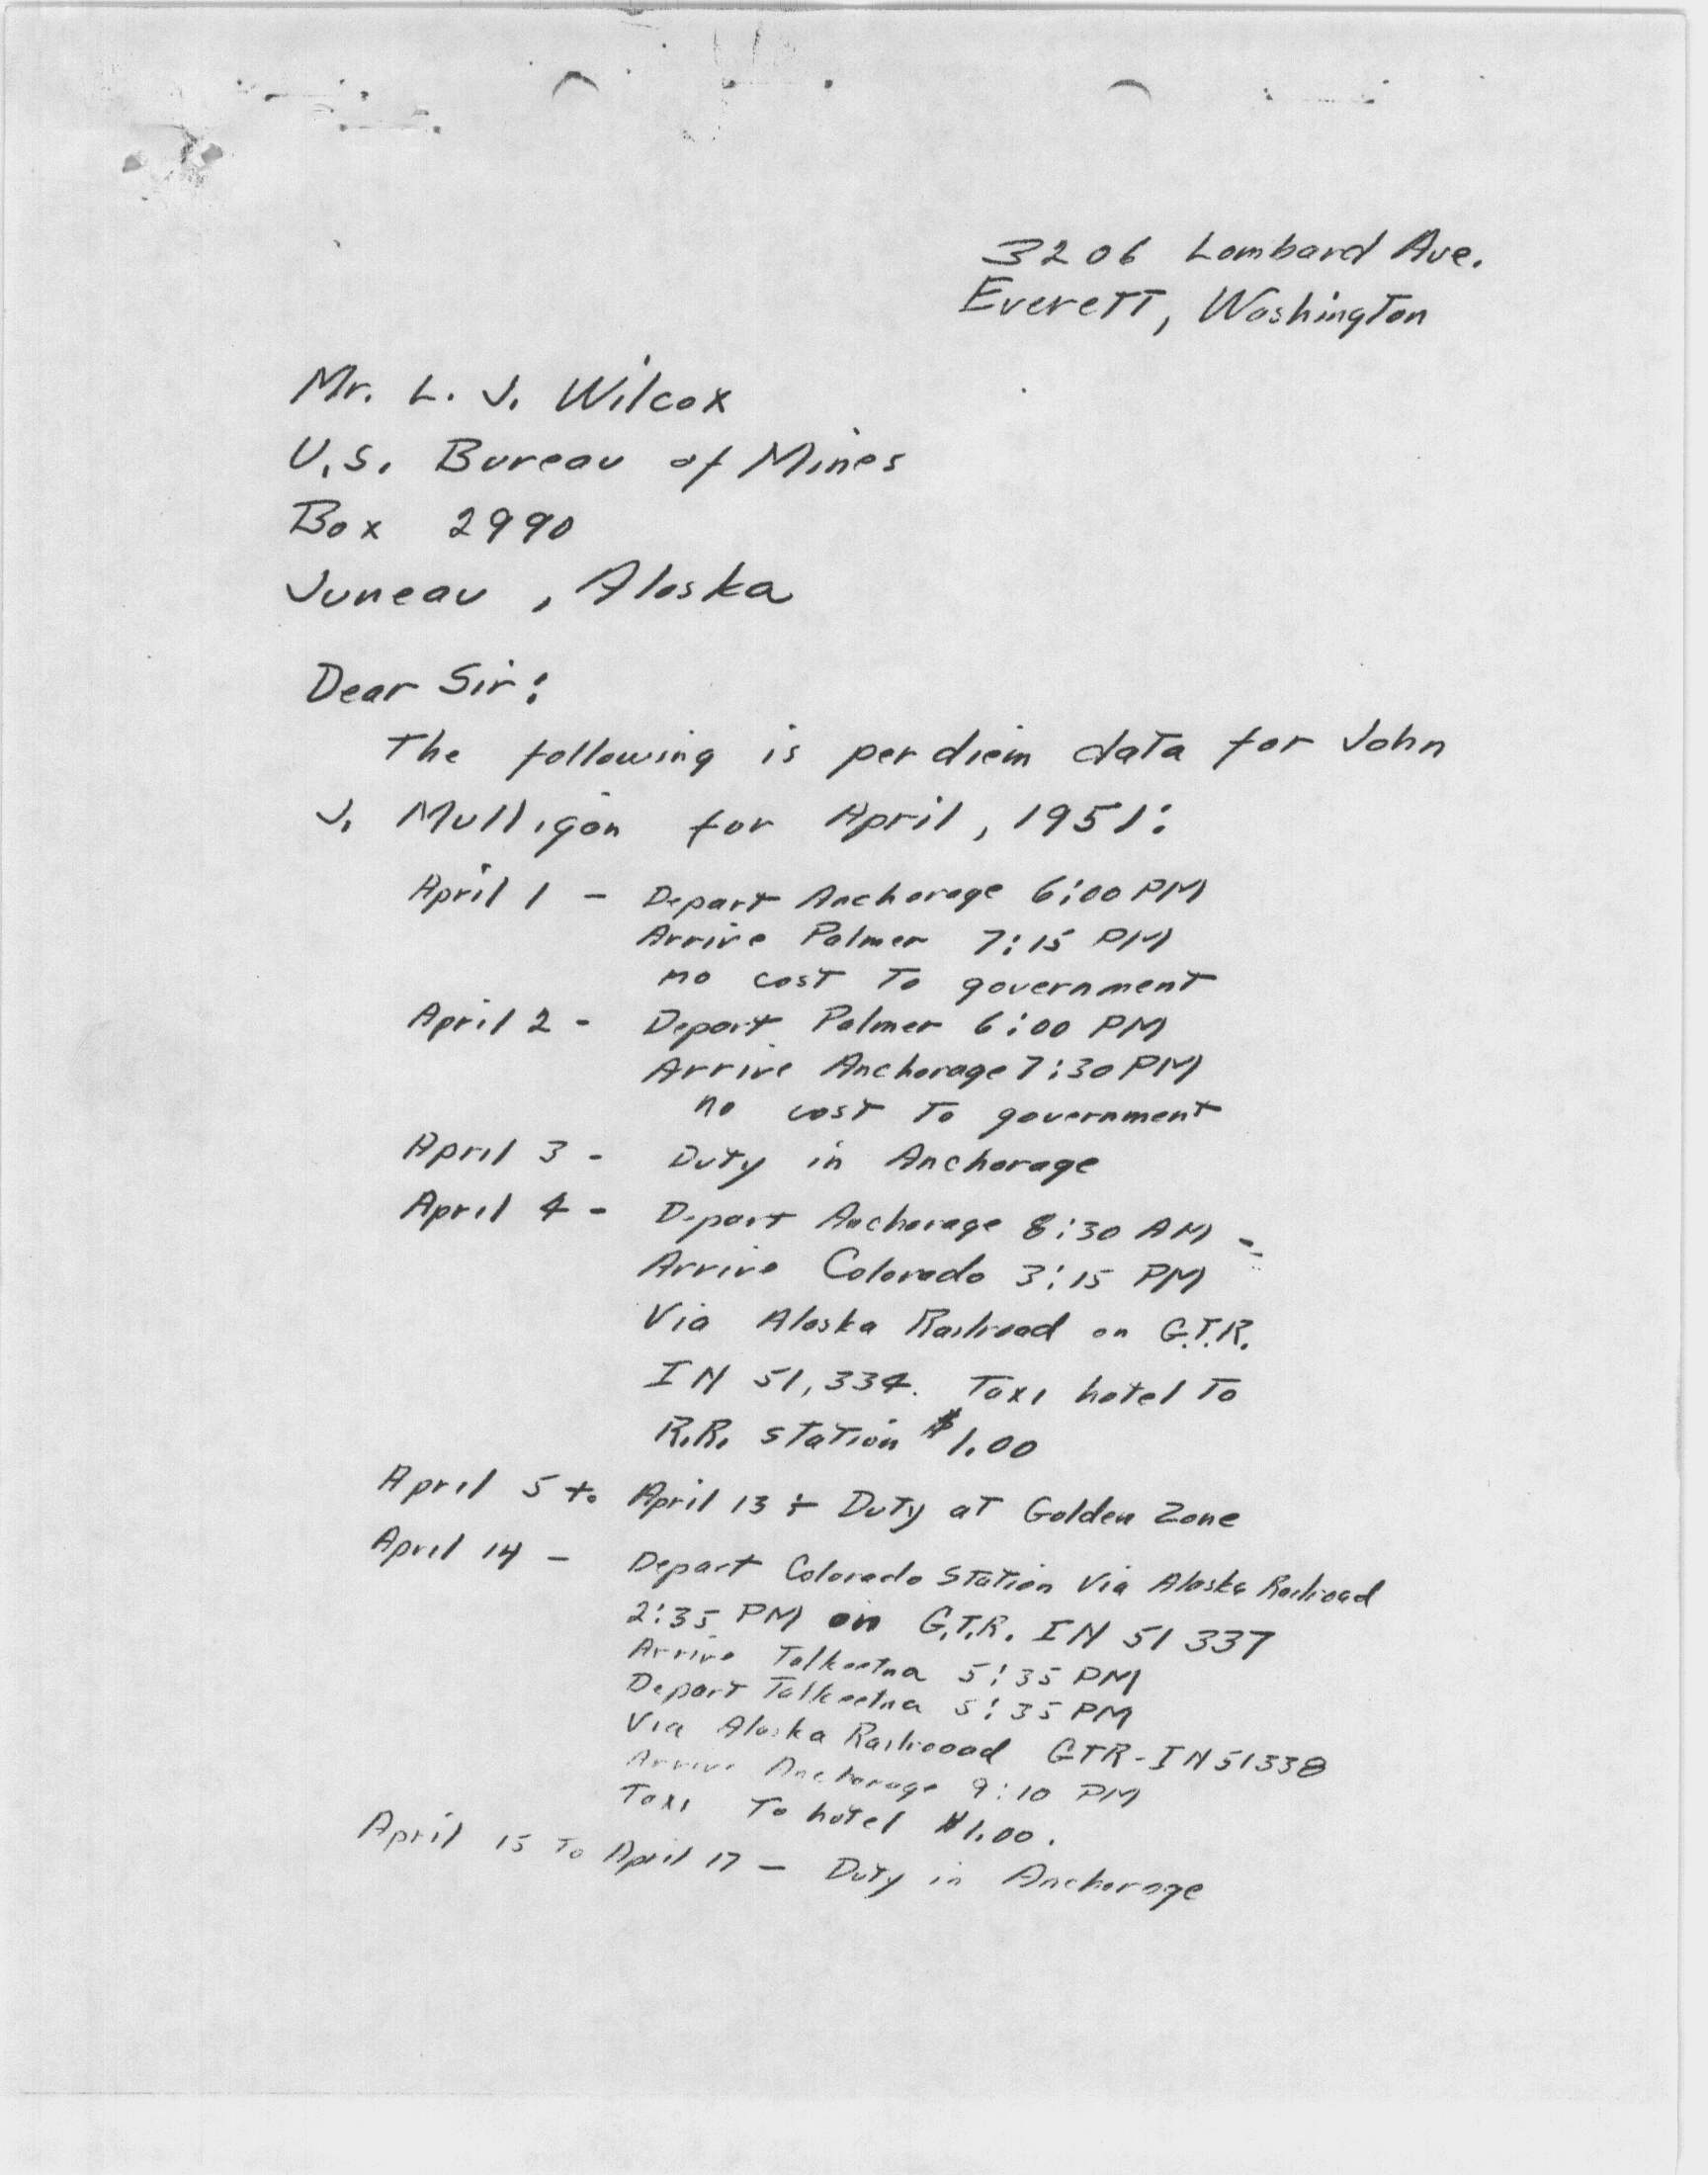 3206 Lombard Ave.
Everett, Washington
Mr. L. J. Wilcox
U.S. Bureau of Mines
Box 2990
Juneau, Alaska
Dear Sir:
The following is per diem data for John
J. Mulligan for April, 1951:
April 1 - Depart Anchorage 6:00 PM
Arrive Palmer 7:15 PM
no cost to government
April 2 - Depart Palmer 6:00 PM
Arrive Anchorage 7:30 PM
no cost to government
April 3 - Duty in Anchorage
April 4 - Depart Anchorage 8:30 AM -
Arrive Colorado 3:15 PM
Via Alaska Railroad on G.T.R.
IN 51,334. Taxi hotel to
R.R. station $1.00
April 5 to April 13 - Duty at Golden Zone
April 14 - Depart Colorado Station Via Alaska Railroad
2:35 PM on G.T.R. IN 51 337
Arrive Talkeetna 5:35 PM
Depart Talkeetna 5:35 PM
Via Alaska Railroood GTR-IN51338
Arrive Anchorage 9:10 PM
Taxi to hotel $1.00.
April 15 to April 17 - Duty in Anchorage